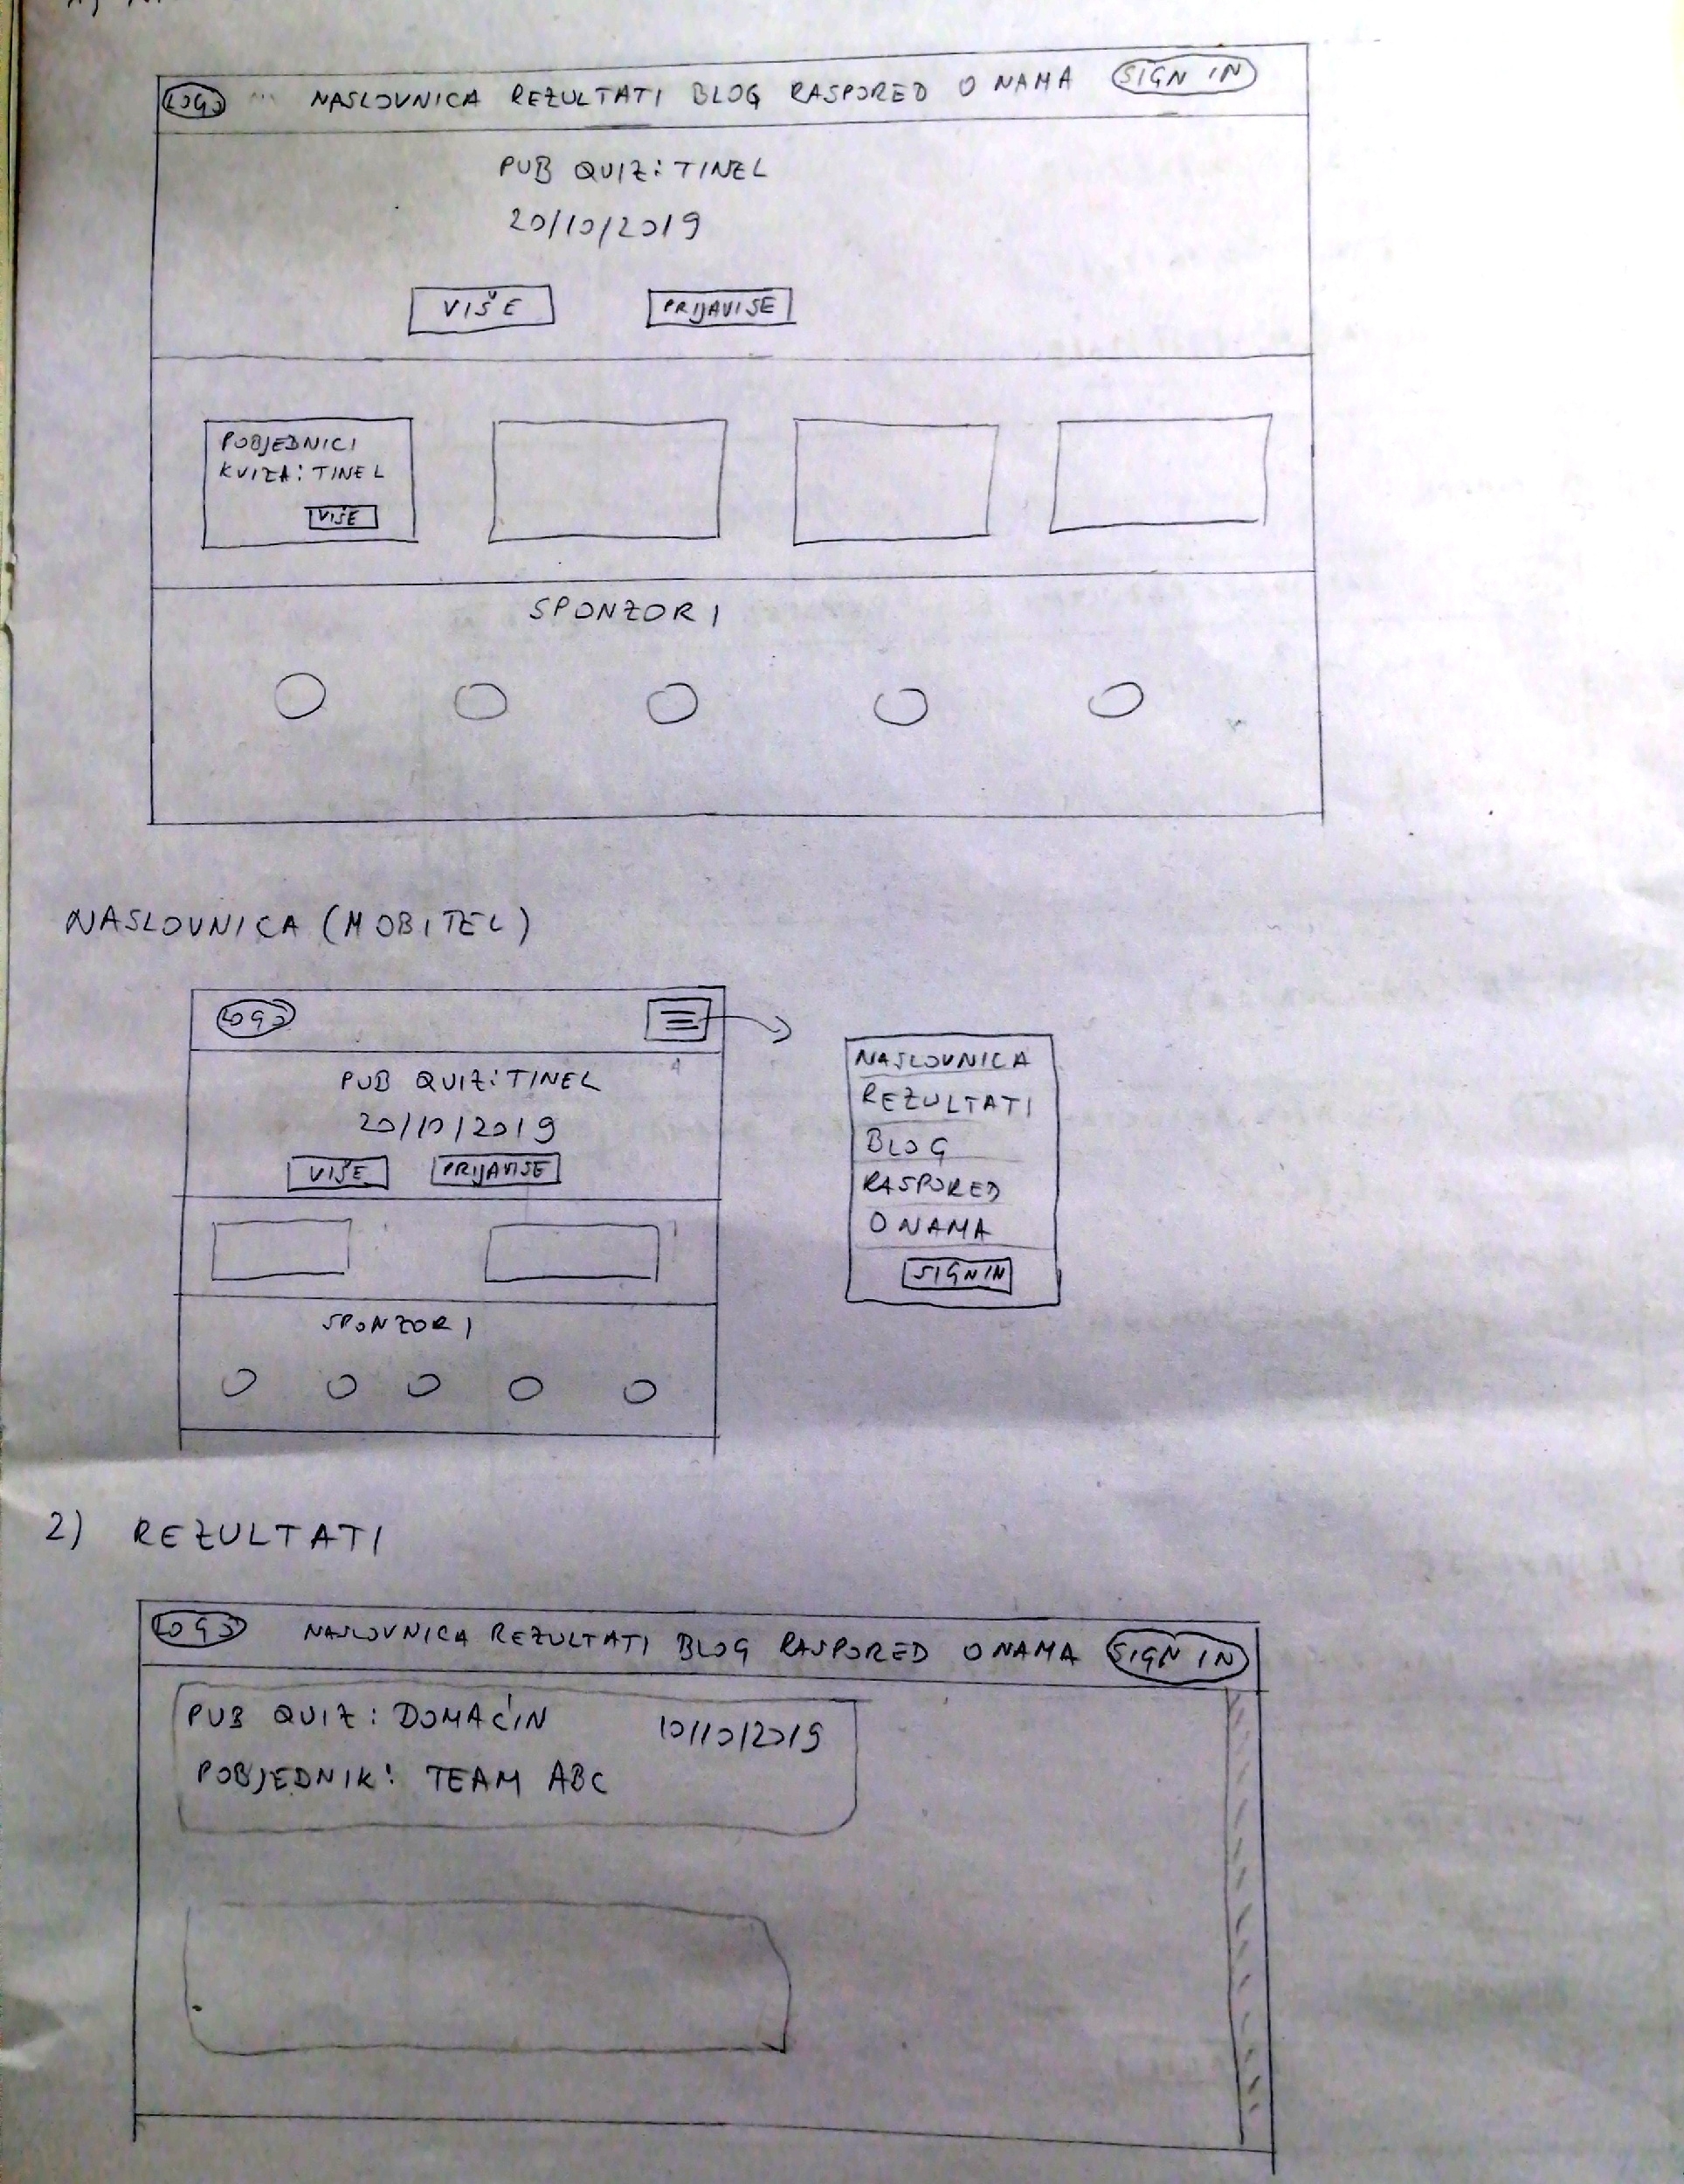 LOGO NASLOVNICA REZULTATI BLOG RASPORED O NAMA SIGN IN
PUB QUIZ: TINEL
20/10/2019
VIŠE PRIJAVI SE
POBJEDNICI
KVIZA: TINEL
VIŠE
SPONZORI
NASLOVNICA (MOBITEL)
LOGO
PUB QUIZ: TINEL
20/10/2019
VIŠE PRIJAVI SE
SPONZORI
NASLOVNICA
REZULTATI
BLOG
RASPORED
O NAMA
SIGN IN
2) REZULTATI
LOGO NASLOVNICA REZULTATI BLOG RASPORED O NAMA SIGN IN
PUB QUIZ: DOMAĆIN 10/10/2019
POBJEDNIK: TEAM ABC